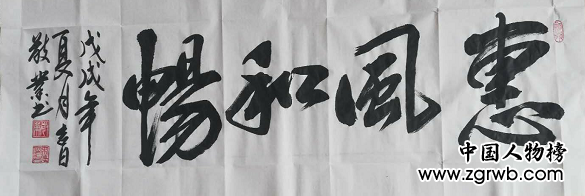 惠風和暢
戊戌年
夏月書
敬業書
中国人物榜
www.zgrwb.com